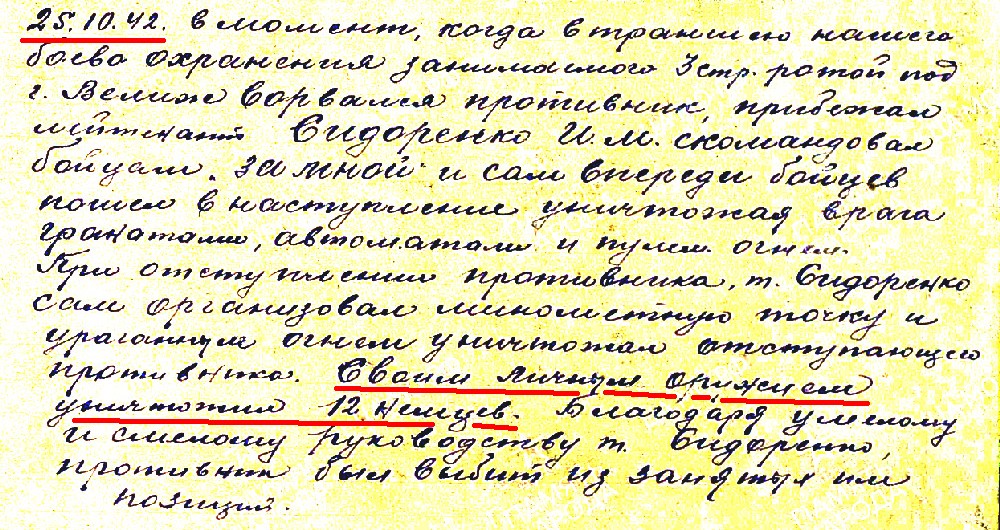 25.10.42. в момент, когда в траншею нашего
боево охранения занимаемого 3 стр. ротой под
г. Велиж ворвался противник, прибежал
лейтенант Сидоренко И.М. скомандовал
бойцам. за мной и сам впереди бойцев
пошел в наступление уничтожая врага
гранатами, автоматами и пулем. огнем.
При отступлении противника, т. Сидоренко
сам организовал минометную точку и
ураганным огнем уничтожал отступающего
противника. Своим личным оружием
уничтожил 12 немцев. Благодаря умелому
и смелому руководству т. Сидоренко,
противник был выбит из занятых им
позиций.